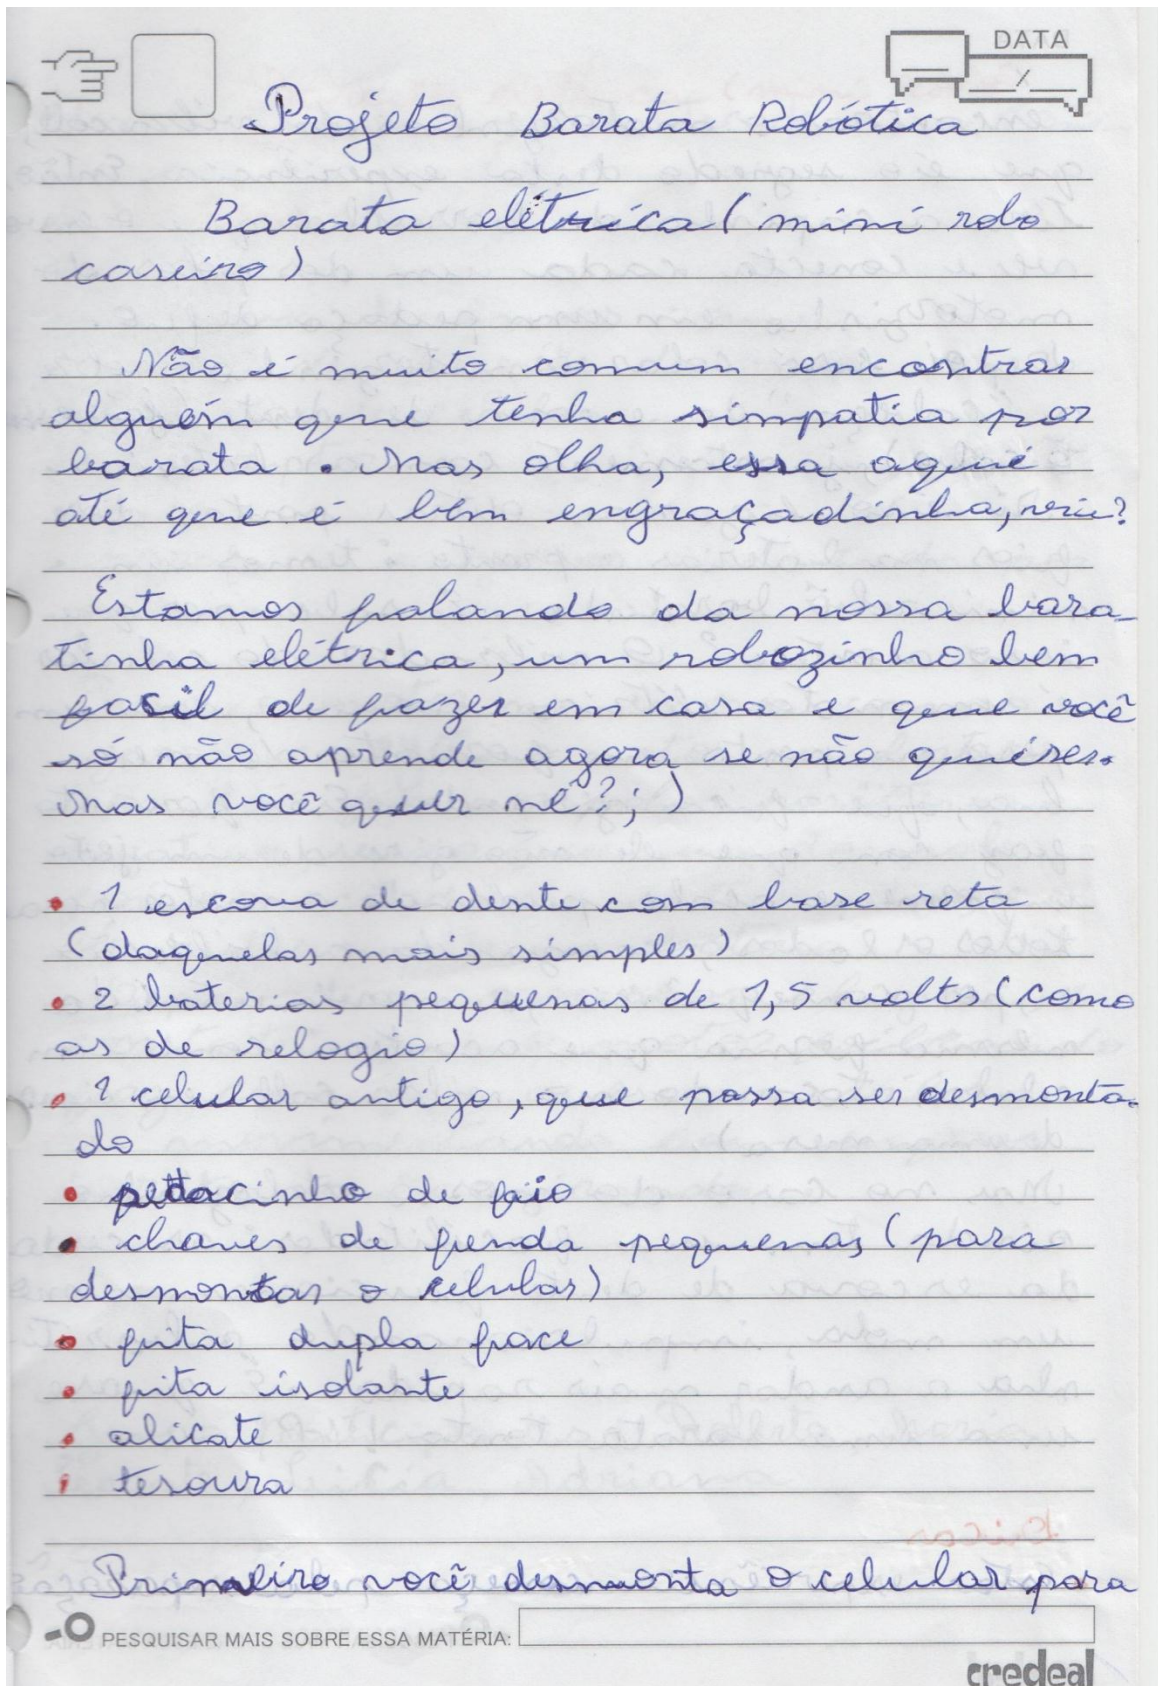 DATA
/
Projeto Barata Robótica
Barata elétrica (mini robo
caseiro)
Não é muito comum encontrar
alguém que tenha simpatia por
barata. Mas olha, essa aqui
até que é bem engraçadinha, viu?
Estamos falando da nossa bara-
tinha elétrica, um robozinho bem
facil de fazer em casa e que você
só não aprende agora se não quiser.
Mas você quer né? ;)
• 1 escova de dente com base reta
(daquelas mais simples)
• 2 baterias pequenas de 1,5 volts (como
as de relogio)
• 1 celular antigo, que possa ser desmonta-
do
• pedacinho de fio
• chaves de fenda pequenas (para
desmontar o celular)
• fita dupla face
• fita isolante
• alicate
• tesoura
Primeiro você desmonta o celular para
PESQUISAR MAIS SOBRE ESSA MATÉRIA:
credeal